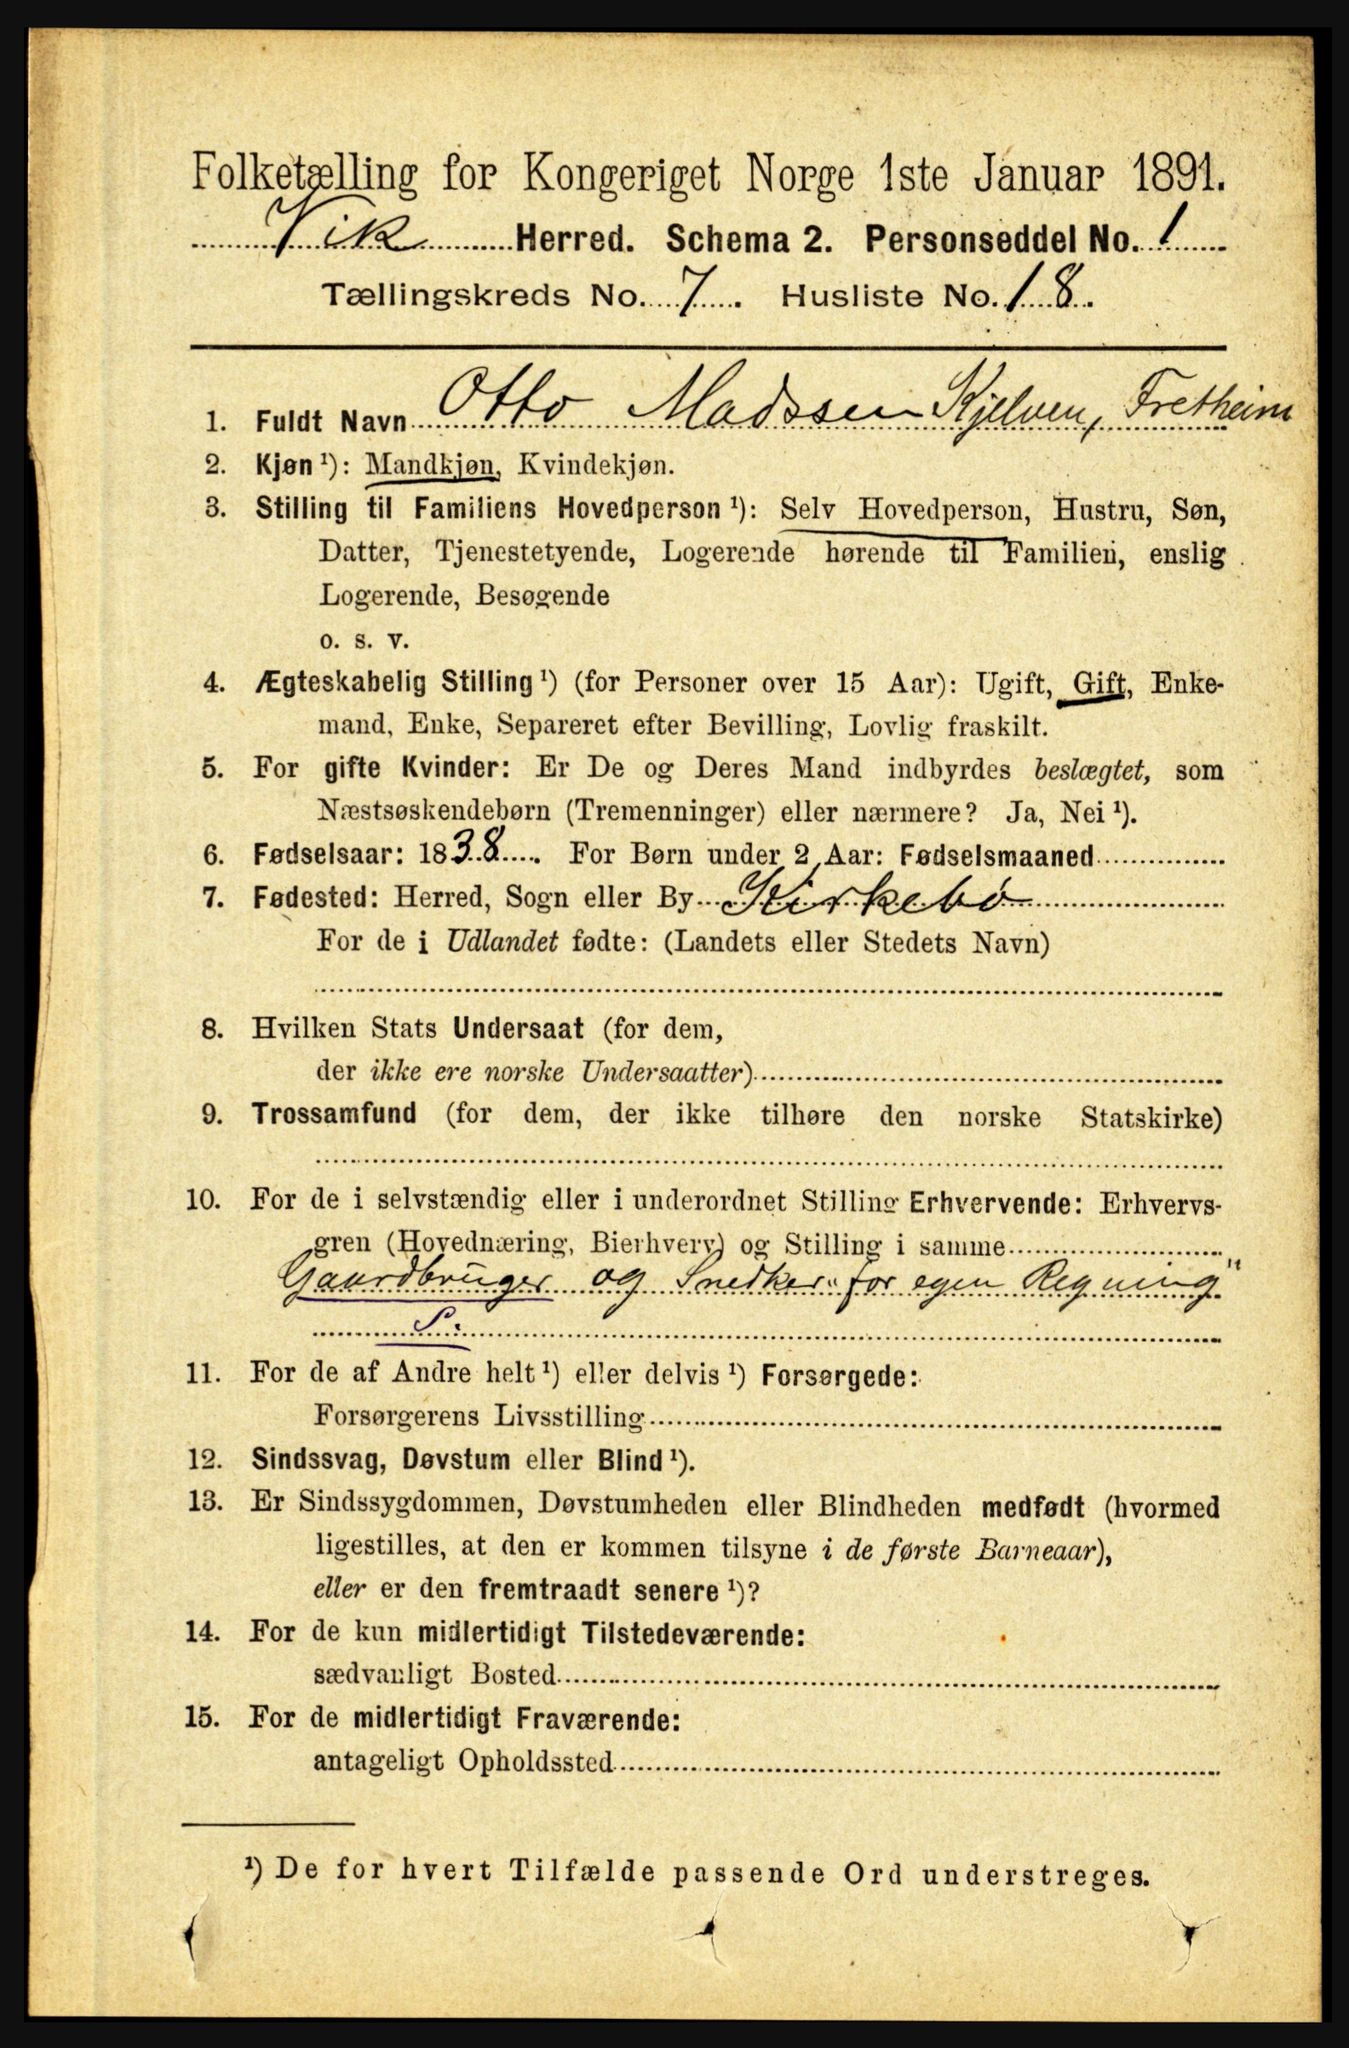 Folketælling for Kongeriget Norge 1ste Januar 1891.
Vik Herred. Schema 2. Personseddel No. 1
Tællingskreds No. 7. Husliste No. 18.
1. Fuldt Navn Otto Madssen Kjelven, Fretheim
2. Kjøn ¹): Mandkjøn, Kvindekjøn.
3. Stilling til Familiens Hovedperson ¹): Selv Hovedperson, Hustru, Søn,
Datter, Tjenestetyende, Logerende hørende til Familien, enslig
Logerende, Besøgende
o. s. v.
4. Ægteskabelig Stilling ¹) (for Personer over 15 Aar): Ugift, Gift, Enke-
mand, Enke, Separeret efter Bevilling, Lovlig fraskilt.
5. For gifte Kvinder: Er De og Deres Mand indbyrdes beslægtet, som
Næstsøskendebørn (Tremenninger) eller nærmere? Ja, Nei ¹).
6. Fødselsaar: 1838. For Børn under 2 Aar: Fødselsmaaned
7. Fødested: Herred, Sogn eller By Kirkebø
For de i Udlandet fødte: (Landets eller Stedets Navn)
8. Hvilken Stats Undersaat (for dem,
der ikke ere norske Undersaatter)
9. Trossamfund (for dem, der ikke tilhøre den norske Statskirke)
10. For de i selvstændig eller i underordnet Stilling Erhvervende: Erhvervs-
gren (Hovednæring, Bierhverv) og Stilling i samme
Gaardbruger og Snedker "for egen Regning"
S.
11. For de af Andre helt ¹) eller delvis ¹) Forsørgede:
Forsørgerens Livsstilling
12. Sindssvag, Døvstum eller Blind ¹).
13. Er Sindssygdommen, Døvstumheden eller Blindheden medfødt (hvormed
ligestilles, at den er kommen tilsyne i de første Barneaar),
eller er den fremtraadt senere ¹)?
14. For de kun midlertidigt Tilstedeværende:
sædvanligt Bosted
15. For de midlertidigt Fraværende:
antageligt Opholdssted
¹) De for hvert Tilfælde passende Ord understreges.